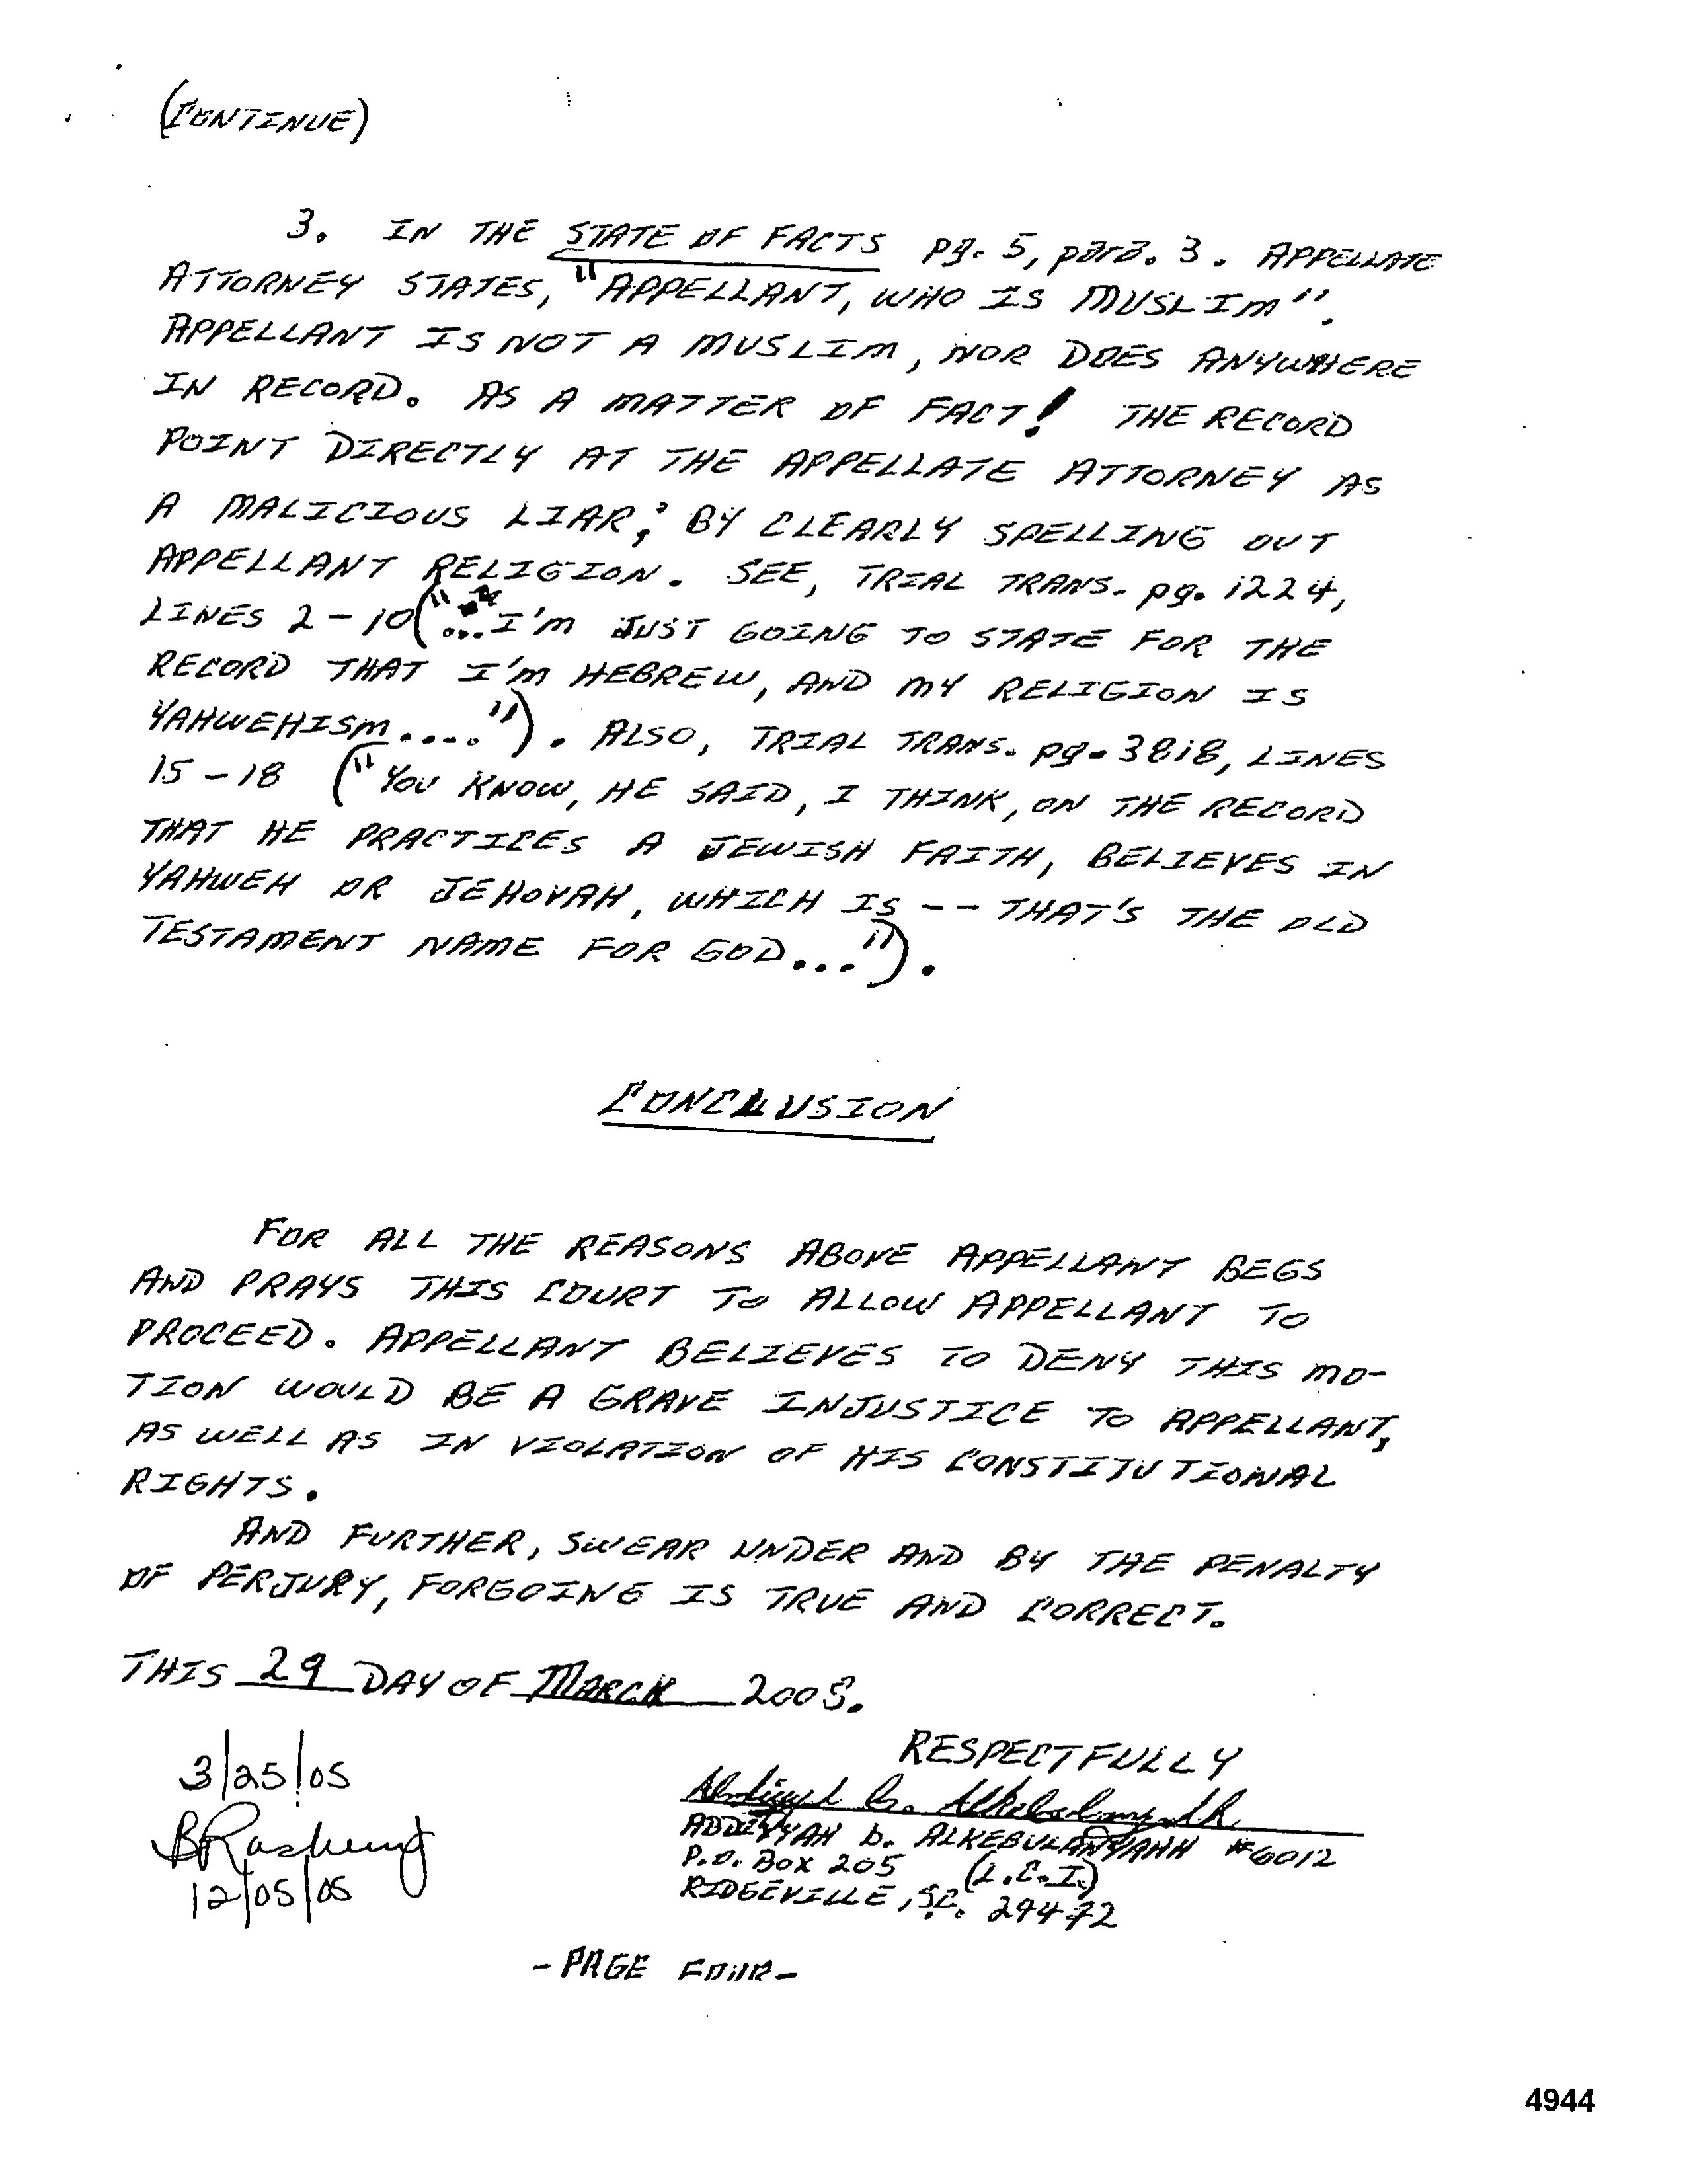 (CONTINUE)
3. IN THE STATE OF FACTS pg. 5, para. 3. APPELLATE
ATTORNEY STATES, "APPELLANT, WHO IS MUSLIM".
APPELLANT IS NOT A MUSLIM, NOR DOES ANYWHERE
IN RECORD. AS A MATTER OF FACT! THE RECORD
POINT DIRECTLY AT THE APPELLATE ATTORNEY AS
A MALICIOUS LIAR; BY CLEARLY SPELLING OUT
APPELLANT RELIGION. SEE, TRIAL TRANS. pg. 1224,
LINES 2-10("...I'm JUST GOING TO STATE FOR THE
RECORD THAT I'm HEBREW, AND MY RELIGION IS
YAHWEHISM...."). ALSO, TRIAL TRANS. pg. 3818, LINES
15-18 ("YOU KNOW, HE SAID, I THINK, ON THE RECORD
THAT HE PRACTICES A JEWISH FAITH, BELIEVES IN
YAHWEH OR JEHOVAH, WHICH IS -- THAT'S THE OLD
TESTAMENT NAME FOR GOD...").
CONCLUSION
FOR ALL THE REASONS ABOVE APPELLANT BEGS
AND PRAYS THIS COURT TO ALLOW APPELLANT TO
PROCEED. APPELLANT BELIEVES TO DENY THIS MO-
TION WOULD BE A GRAVE INJUSTICE TO APPELLANT,
AS WELL AS IN VIOLATION OF HIS CONSTITUTIONAL
RIGHTS.
AND FURTHER, SWEAR UNDER AND BY THE PENALTY
OF PERJURY, FORGOING IS TRUE AND CORRECT.
THIS 29 DAY OF MARCH 2005.
3/25/05
12/05/05
RESPECTFULLY
ABDIYYAH b. ALKEBULANYAHH #6012
P.O. BOX 205 (L.C.I.)
RIDGEVILLE, S.C. 29472
-PAGE FOUR-
4944